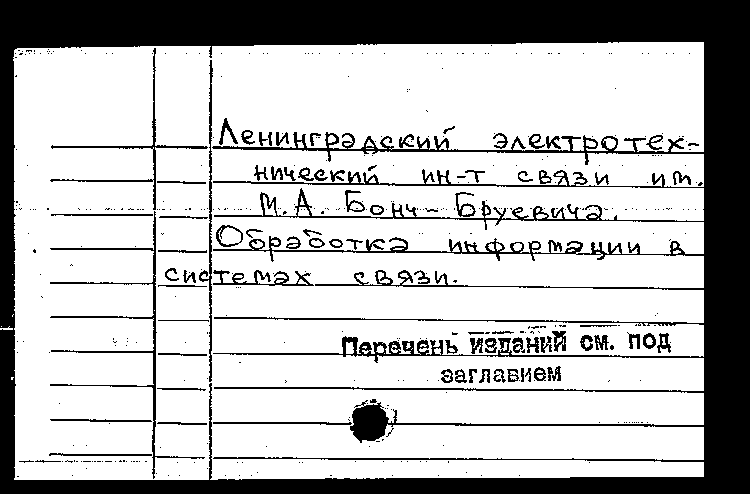 Ленинградский электротех-
нический ин-т связи им.
М.А. Бонч-Бруевича.
Обработка информации в
системах связи.
Перечень изданий см. под
заглавием